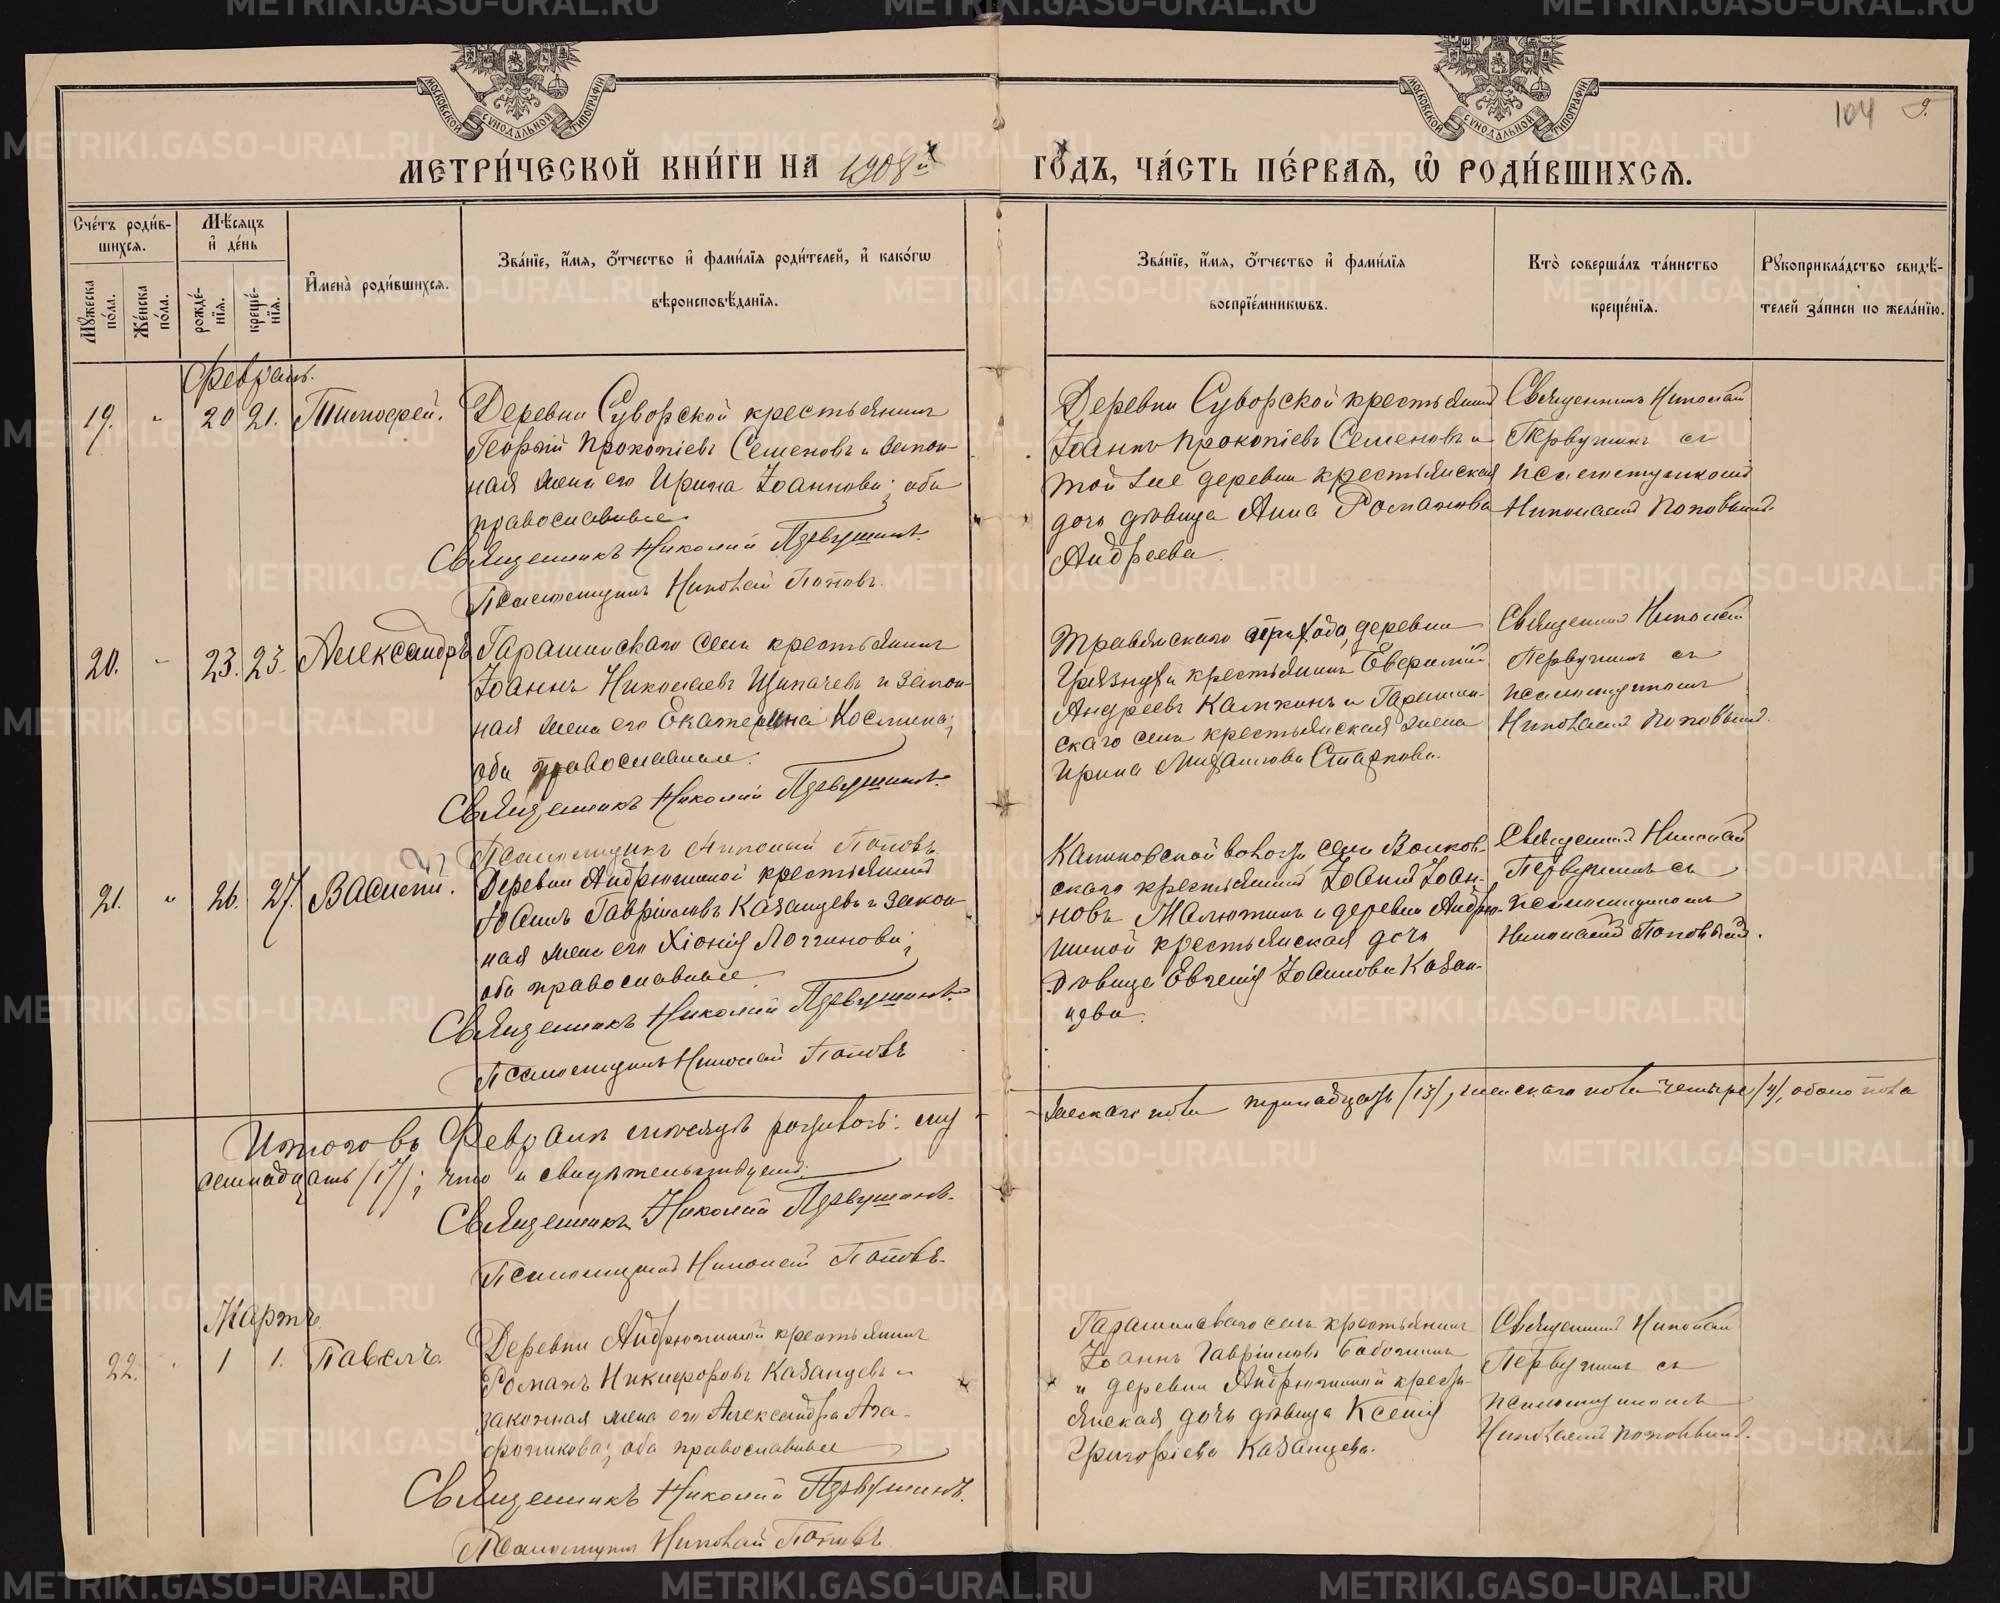 МЕТРИ́ЧЕСКОЙ КНИ́ГИ НА 1908й
ГО́ДЪ, ЧА́СТЬ ПЕ́РВАЯ, Ѡ РОДИ́ВШИХСЯ.
104
9.
МОСКОВСКОЙ СѴНОДАЛЬНОЙ ТИПОГРАФІИ
МОСКОВСКОЙ СѴНОДАЛЬНОЙ ТИПОГРАФІИ
Сче́тъ роди́в-
шихся.
Мꙋ́жеска по́ла.
Же́нска по́ла.
Мѣ́сяцъ
и҆ де́нь
рожде́-
нїя.
креще́-
нїя.
И҆мена̀ роди́вшихся.
Зва́нїе, и҆́мя, ѻ҆́тчество и҆ фами́лїя роди́телей, и҆ како́гѡ
вѣроисповѣ́данїя.
Зва́нїе, и҆́мя, ѻ҆́тчество и҆ фами́лїя
воспрїе́мникѡвъ.
Кто̀ соверша́лъ та́инство
креще́нїя.
Рꙋкоприкла́дство свидѣ́-
телей за́писи по жела́нїю.
Февраль.
19. " 20 21. Тимофей.
Деревни Суворской крестьянинъ
Георгій Прокопіевъ Семеновъ и закон-
ная жена его Ирина Іоаннова; оба
православные
Священникъ Николай Первушинъ.
Псаломщикъ Николай Поповъ.
Деревни Суворской крестьянинъ
Іоаннъ Прокопіевъ Семеновъ и
той же деревни крестьянская
дочь дѣвица Анна Романова
Андреева.
Священникъ Николай
Первушинъ съ
псаломщикомъ
Николаемъ Поповымъ.
20. " 23. 23. Александръ
Гарашинскаго села крестьянинъ
Іоаннъ Николаевъ Щипачевъ и закон-
ная жена его Екатерина Косьмина;
оба православные.
Священникъ Николай Первушинъ.
Псаломщикъ Николай Поповъ.
Травянскаго прихода, деревни
Грязнухи крестьянинъ Евфимій
Андреевъ Калтинъ и Гарашин-
скаго села крестьянская жена
Ирина Михаилова Старкова.
Священникъ Николай
Первушинъ съ
псаломщикомъ
Николаемъ Поповымъ.
21. " 26. 27. Василій.
Деревни Андрюшиной крестьянинъ
Іоаннъ Гавріиловъ Казанцевъ и закон-
ная жена его Хіонія Логгинова;
оба православные
Священникъ Николай Первушинъ.
Псаломщикъ Николай Поповъ
Калиновской волости села Волков-
скаго крестьянинъ Іоаннъ Іоан-
новъ Малютинъ и деревни Андрю-
шиной крестьянская дочь
дѣвица Евгенія Іоаннова Казан-
цева.
Священникъ Николай
Первушинъ съ
псаломщикомъ
Николаемъ Поповымъ.
Итого въ Февралѣ мѣсяцѣ родилось: му
жескаго пола тринадцать /13/, женскаго пола четыре /4/, обоего пола
семнадцать /17/; что и свидѣтельствуемъ.
Священникъ Николай Первушинъ.
Псаломщикъ Николай Поповъ.
Мартъ
22. " 1 1. Павелъ.
Деревни Андрюшиной крестьянинъ
Романъ Никифоровъ Казанцевъ и
законная жена его Александра Ага-
фоникова; оба православные
Священникъ Николай Первушинъ.
Псаломщикъ Николай Поповъ
Гарашинскаго села крестьянинъ
Іоаннъ Гавріиловъ Бабочкинъ
и деревни Андрюшиной кресть-
янская дочь дѣвица Ксенія
Григоріева Казанцева.
Священникъ Николай
Первушинъ съ
псаломщикомъ
Николаемъ Поповымъ.
METRIKI.GASO-URAL.RU